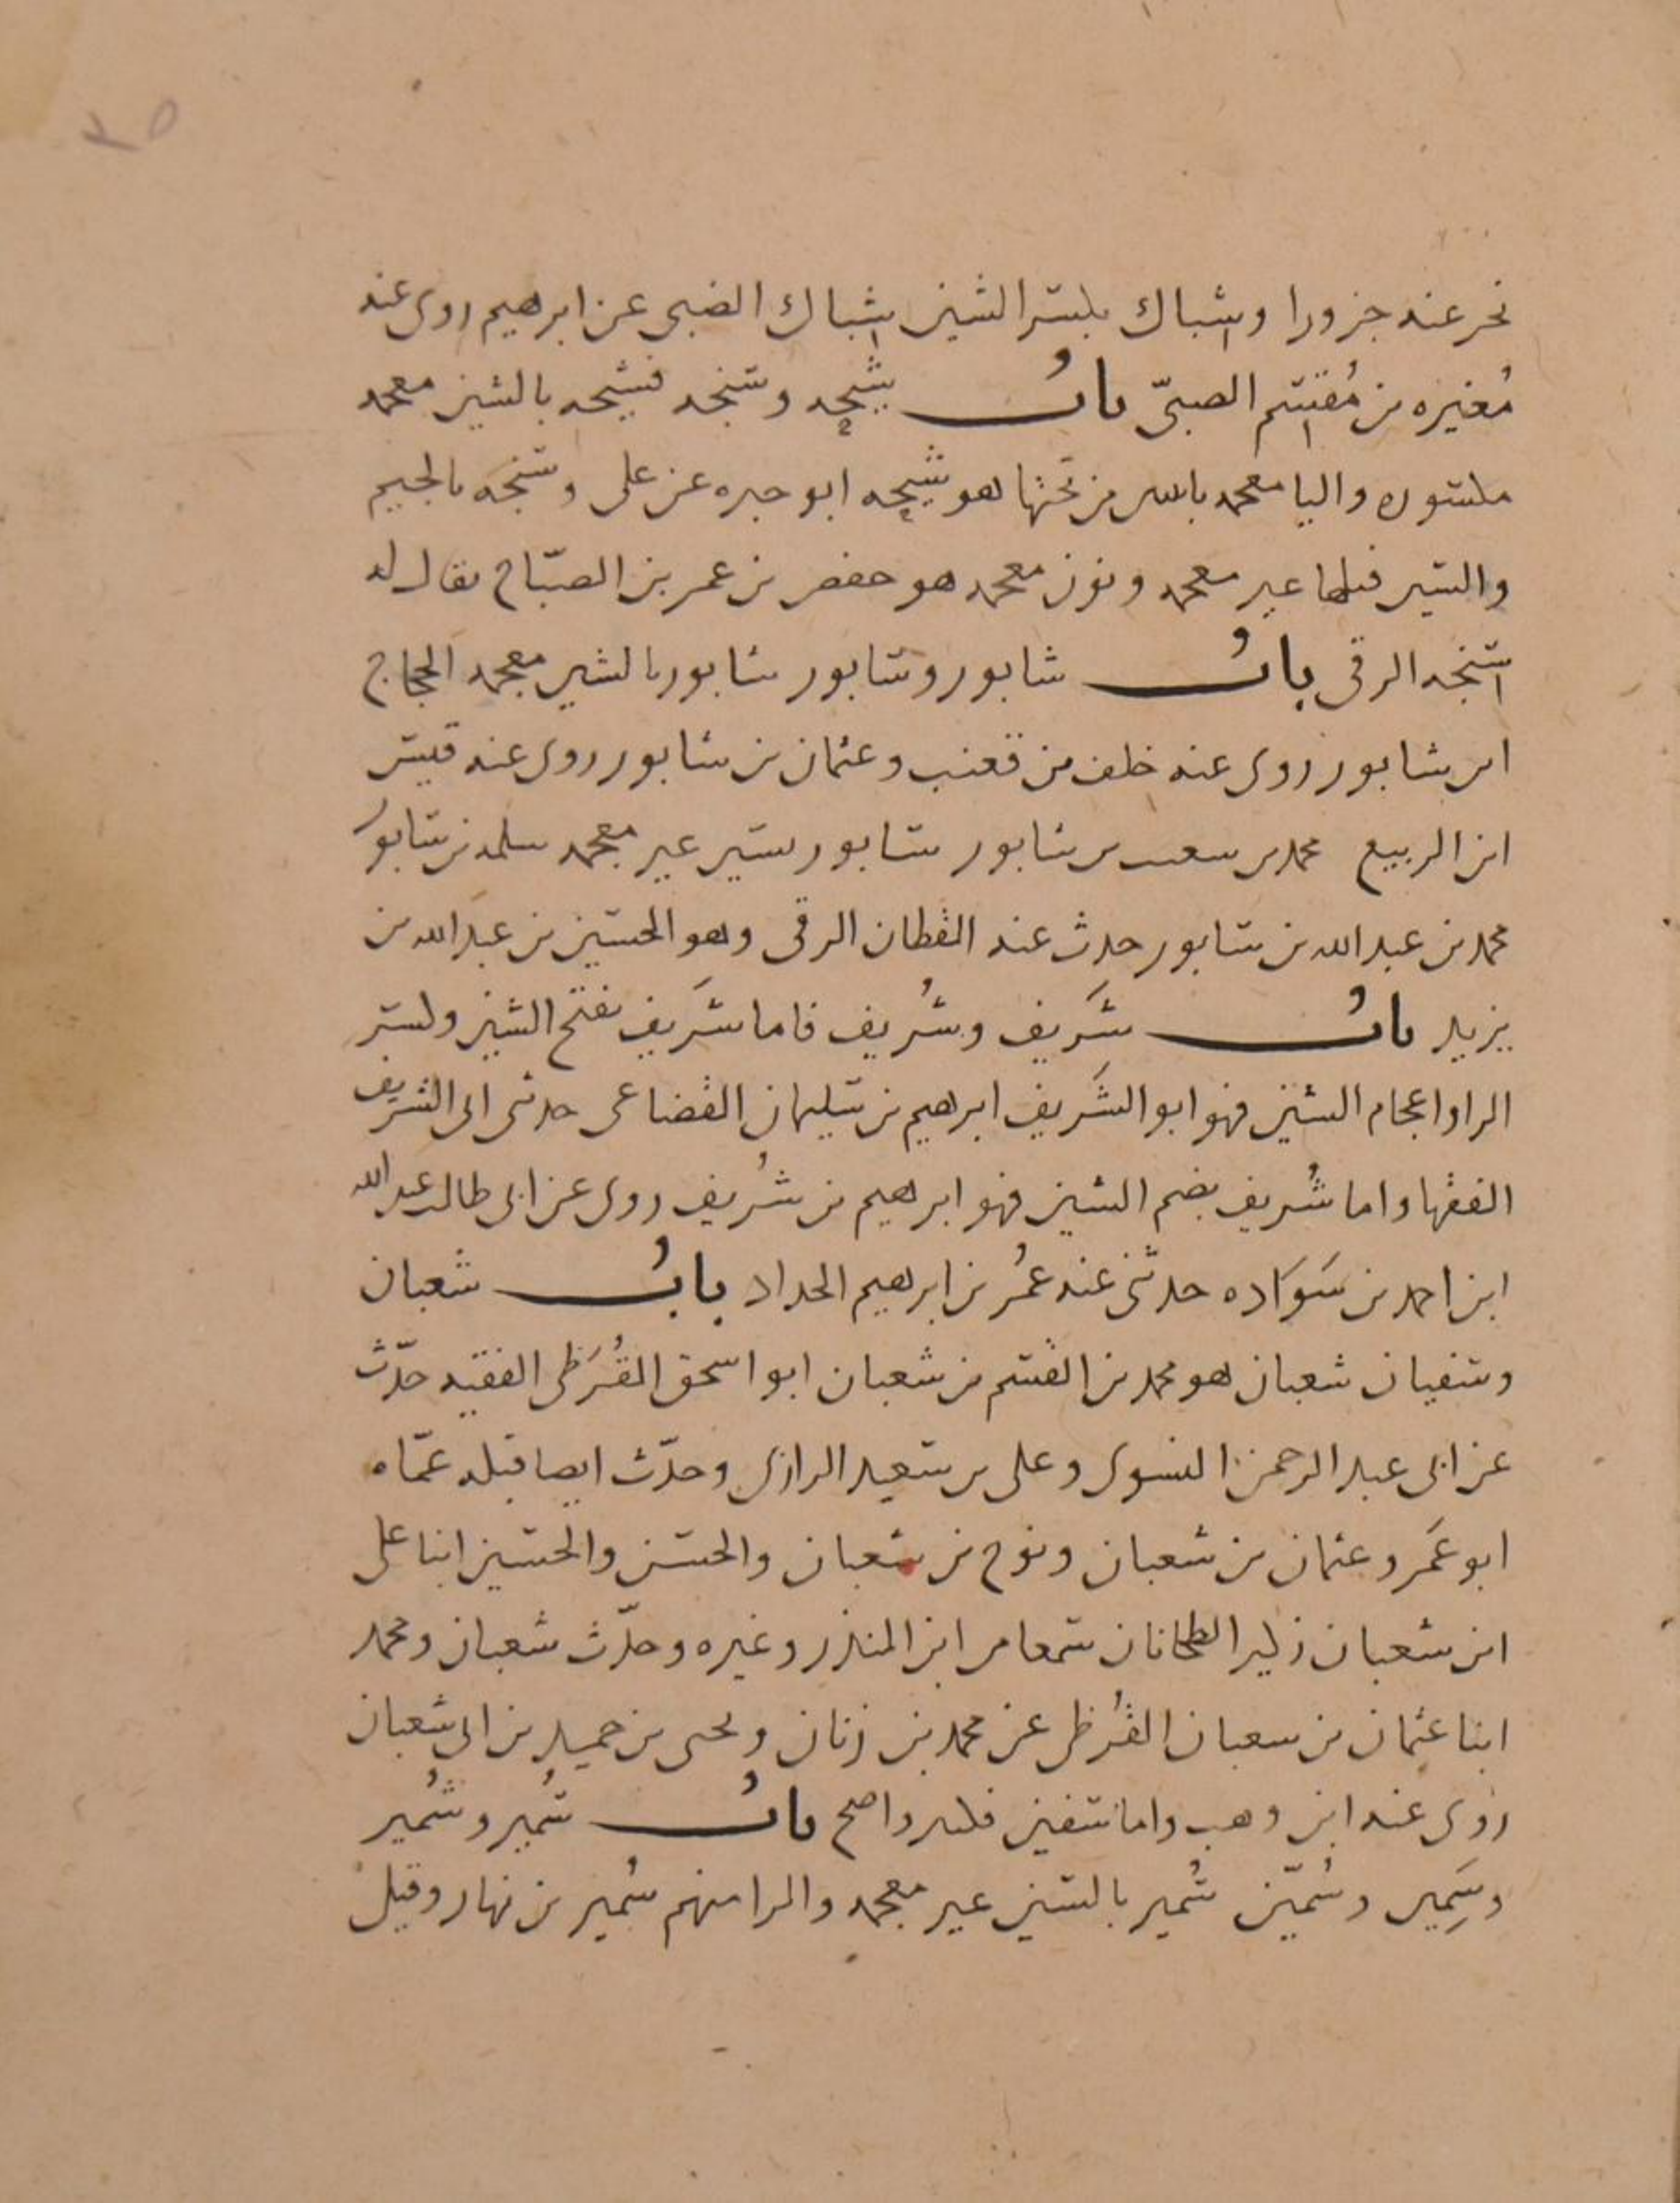 ٣٥
نحر عنده جزورا وشباك بكسر الشين شباك الضبي عن ابرهيم روى عنه
مُغيره بن مُقسِم الضبيّ بابُ شيحه وسنجه فشيحه بالشين معجمه
مكسوره واليا معجمه باثنين من تحتها هو شيحه ابو حبره عن على وسنجه بالجيم
والسين قبلها غير معجمه ونون معجمه هو حفص بن عمر بن الصبّاح يقال له
سنجه الرقى بابُ شابور وسابور شابور بالشين معجمه الحجاج
ابن شابور روى عنه خلف بن قعنب وعثمان بن شابور روى عنه قيس
ابن الربيع محمد بن سعيد بن شابور سابور بسين غير معجمه سلمه بن سابور
محمد بن عبد الله بن سابور حدث عنه القطان الرقى وهو الحسين بن عبد الله بن
يزيد بابُ شَريف وشُريف فاما شَريف بفتح الشين وكسر
الرا واعجام الشين فهو ابو الشَريف ابرهيم بن سليمان القضاعى حدثنى ابى الشريف
الفقها واما شُريف بضم الشين فهو ابرهيم بن شُريف روى عن ابى طالب عبد الله
ابن احمد بن سَوَاده حدثنى عنه عمُر بن ابرهيم الحداد بابُ شعبان
وسفيان شعبان هو محمد بن القسم بن شعبان ابو اسحق القُرَظى الفقيه حدّث
عن ابى عبد الرحمن النسوى وعلى بن سعيد الرازى وحدّث ايضا قبله عمّاه
ابو عمَرو عثمان بن شعبان ونوح بن شعبان والحسن والحسين ابنا على
ابن شعبان زكير الطحانان سمعا من ابن المنذر وغيره وحدّث شعبان ومحمد
ابنا عثمان بن شعبان القُرظى عن محمد بن زنان ويحيى بن حميد بن ابى شعبان
روى عنه ابن وهب واما سفين فكثير واضح بابُ سُمير وشُمير
وسَمِير وسُميّن سُمير بالسين غير معجمه والرا منهم سُمير بن نهار وقيل